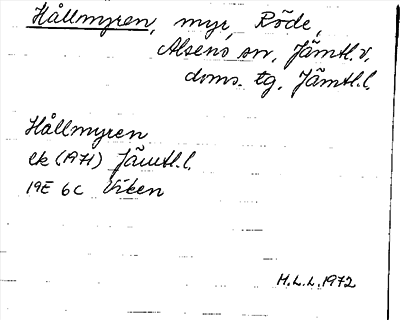 Hållmyren, myr, Röde,
Alsens sn, Jämtl. v.
doms. tg, Jämtl. l.
Hållmyren
ek (1971) Jämtl. l.
19E 6C Viken
H.L.L. 1972